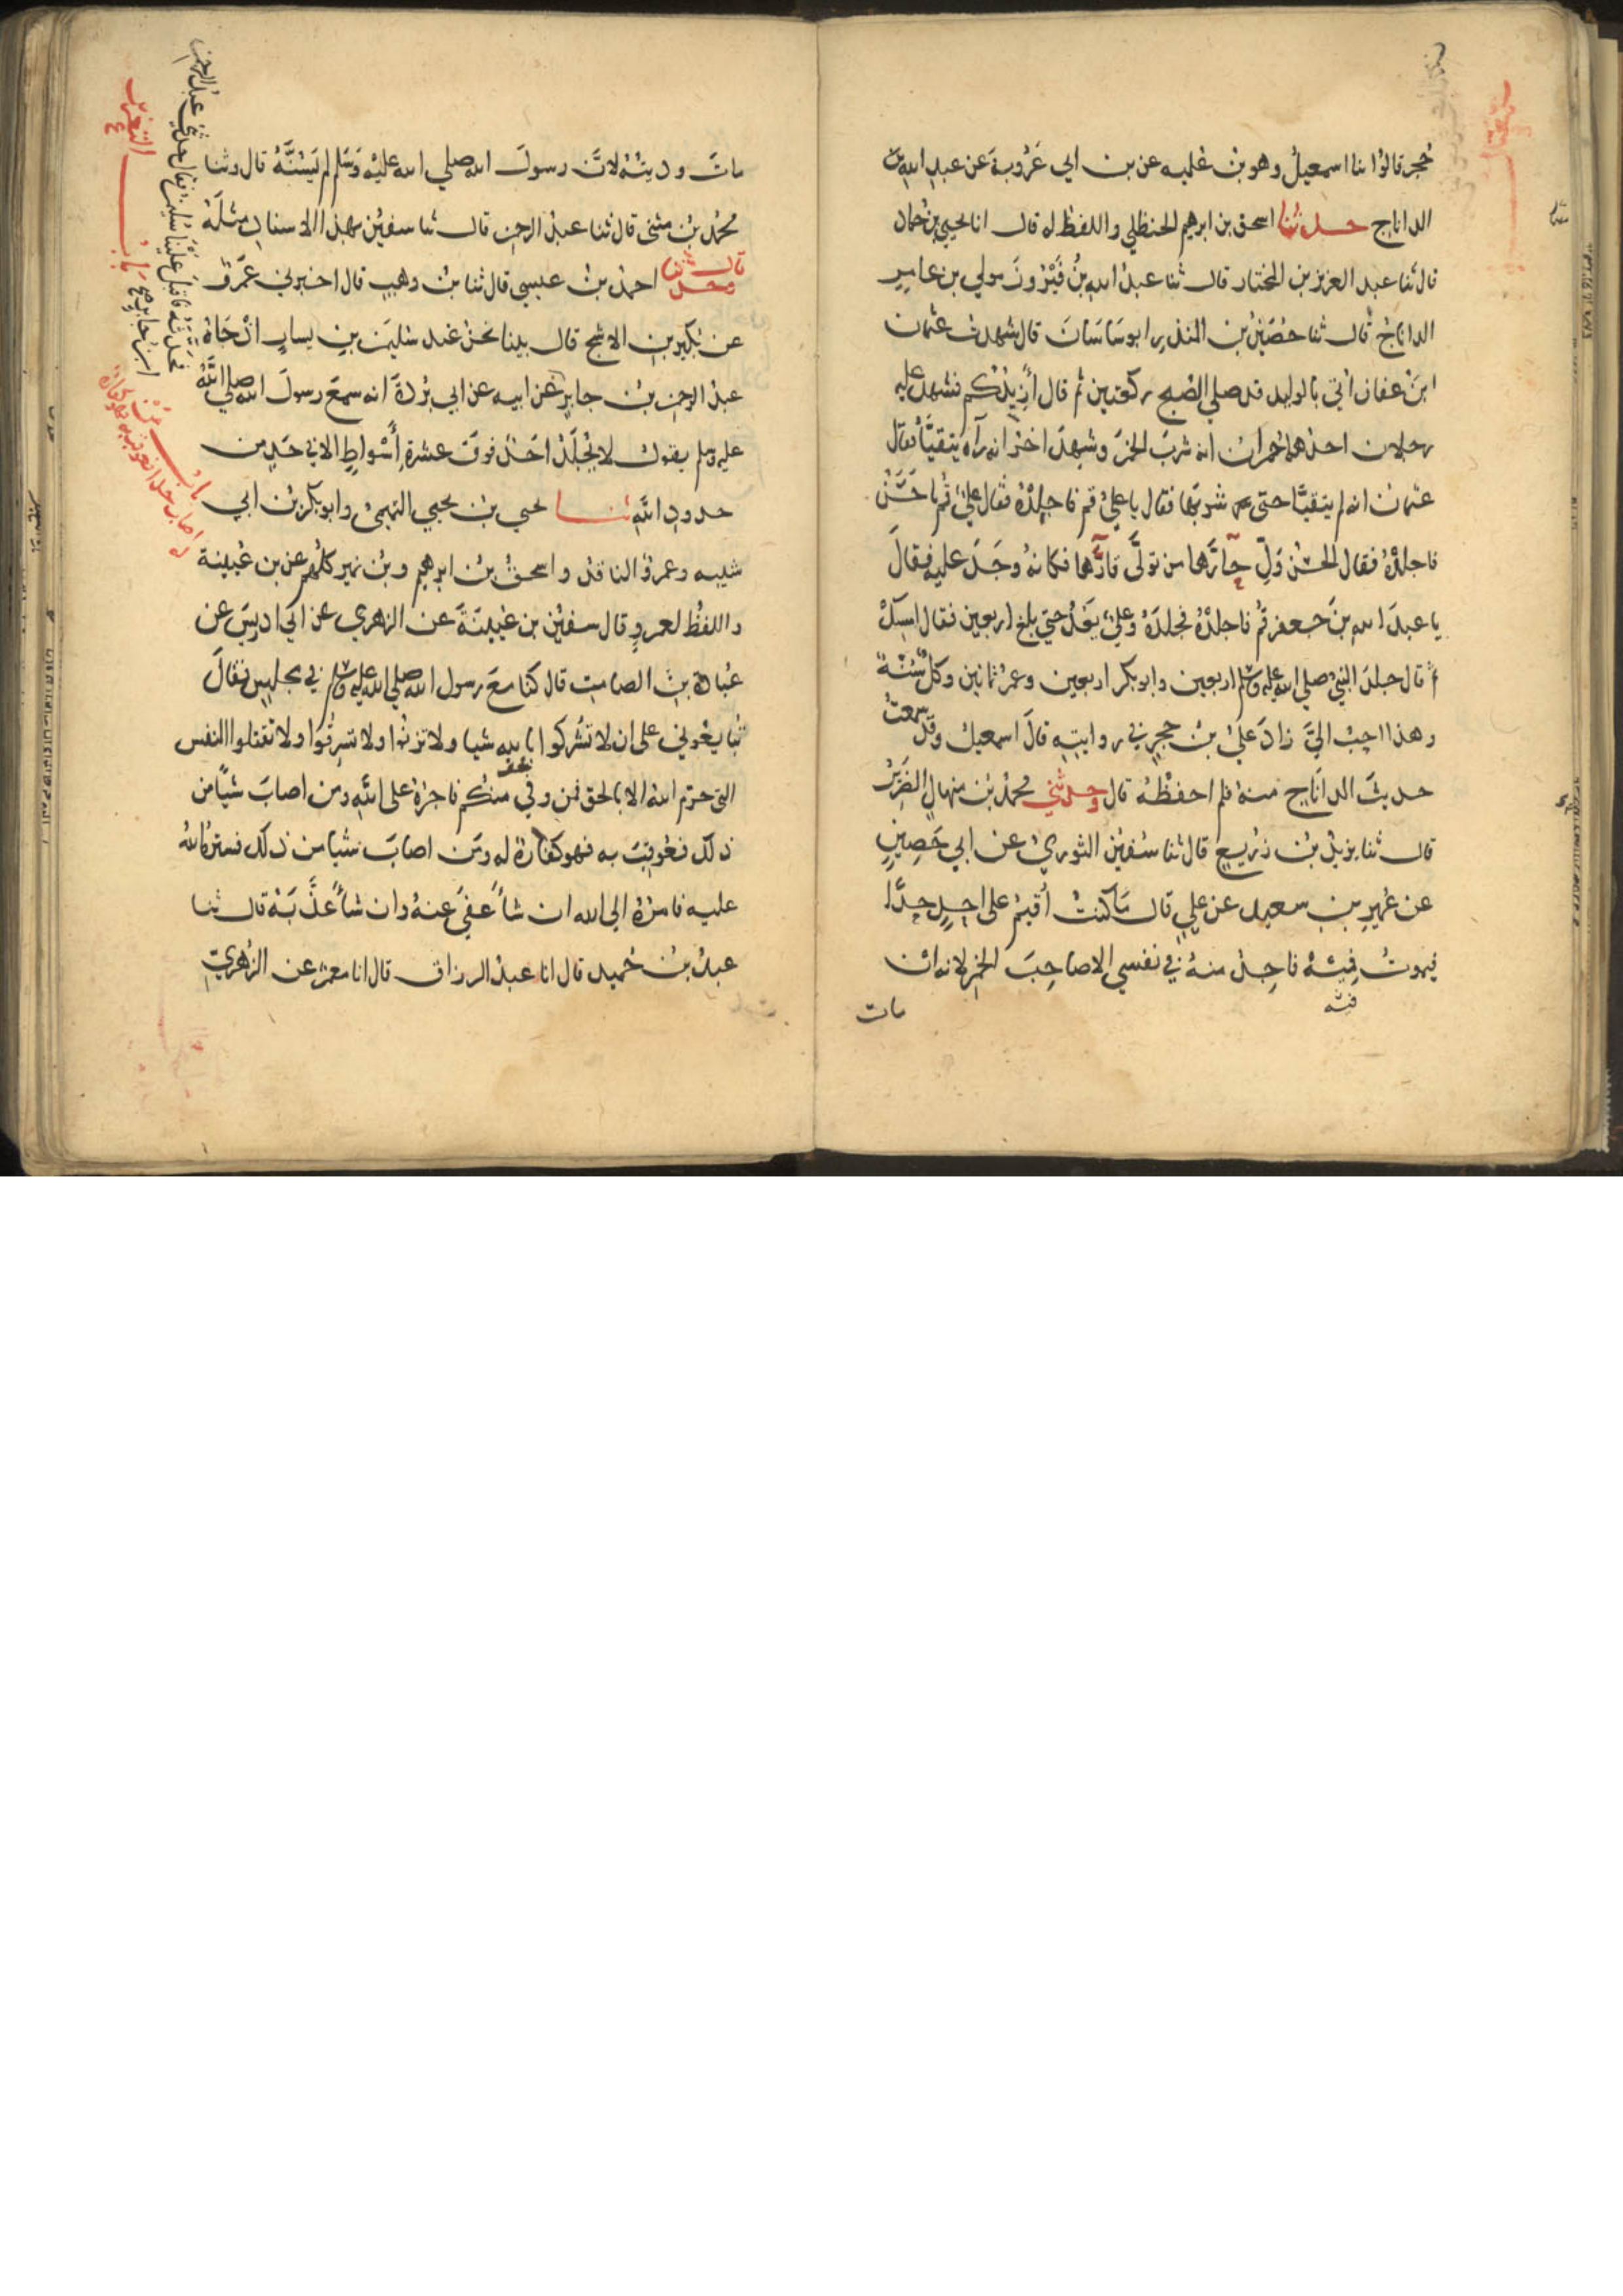 حجر قالوا نا اسمعيل وهو بن علية عن بن ابي عَرُوبةَ عن عبد الله بن
الداناج حدثنا اسحق بن ابرهيم الحنظلي واللفظ له قال انا يحيى بن حماد
قال ثنا عبد العزيز بن المختار قال ثنا عبد الله بن فَيْرُوزَ مولي بن عامر
الداناج قال ثنا حُضَين بن المنذر ابو ساسان قال شهدت عثمان
ابن عفان اتي بالوليد قد صلي الصبح ركعتين ثم قال أَزِيدُكم فشهد عليه
رجلان احدهما حمران انه شرب الخمر وشهد اخر انه رآه يتقيّأ فقال
عثمان انه لم يتقيّا حتى شربها فقال يا علي قم فاجلده فقال علي قم يا حسن
فاجلده فقال الحسن وَلِّ حارَّها من تولَّى قارَّها فكانه وجد عليه فقال
يا عبد الله بن جعفر قم فاجلده فجلده وعلي يعدّ حتى بلغ اربعين فقال امسك
ثم قال جلد النبي صلي الله عليه وسلم اربعين وابو بكر اربعين وعمر ثمانين وكل سُنّة
وهذا احب اليّ زاد علي بن حجر في روايته قال اسمعيل وقد سمعت
حديث الداناج منه فلم احفظه قال وحدثني محمد بن منهال الضرير
قال ثنا يزيد بن زريع قال ثنا سفين الثوري عن ابي حَصِينٍ
عن عمير بن سعيد عن علي قال ما كنت أقيم على احد حدّا
فيموت فيه فاجد منه في نفسي الا صاحب الخمر لانه ان
مات
مات وديته لان رسول الله صلي الله عليه وسلم لم يَسُنَّهُ قال وثنا
محمد بن مثنى قال ثنا عبد الرحمن قال ثنا سفين بهذا الاسناد مثله
قال وحدثنا احمد بن عيسي قال ثنا بن وهب قال اخبرني عمرو
عن بكير بن الاشج قال بينا نحن عند سليمن بن يسار اذ جاه
عبد الرحمن بن جابر عن ابيه عن ابي بردة انه سمع رسول الله صلي الله
عليه وسلم يقول لا يجلد احد فوق عشرة أسْواطٍ الا في حد من
حدود الله ثنا يحيي بن يحيي التميمي وابو بكر بن ابي
شيبه وعمرو الناقد واسحق بن ابرهيم وبن نمير كلهم عن بن عيينة
واللفظ لعمرو قال سفين بن عيينة عن الزهري عن ابي ادريس عن
عبادة بن الصامت قال كنا مع رسول الله صلي الله عليه وسلم في مجلس فقال
تبايعوني على ان لا تشركوا بالله شيا ولا تزنوا ولا تسرقوا ولا تقتلوا النفس
التي حرّم الله الا بالحق فمن وفي منكم فاجره على الله ومن اصاب شيًا من
ذلك فعوقب به فهو كفارة له ومن اصاب شيا من ذلك فستره الله
عليه فامره الي الله ان شأ عفى عنه وان شأ عذّبه قال ثنا
عبد بن حميد قال انا عبد الرزاق قال انا معمر عن الزهري
فحدثه فاقبل علينا سليمن فقال حدثني عبد الرحمن
ابن جابر
باب التعزير
باب من اصاب حدا فعوقب به فهو كفارة له